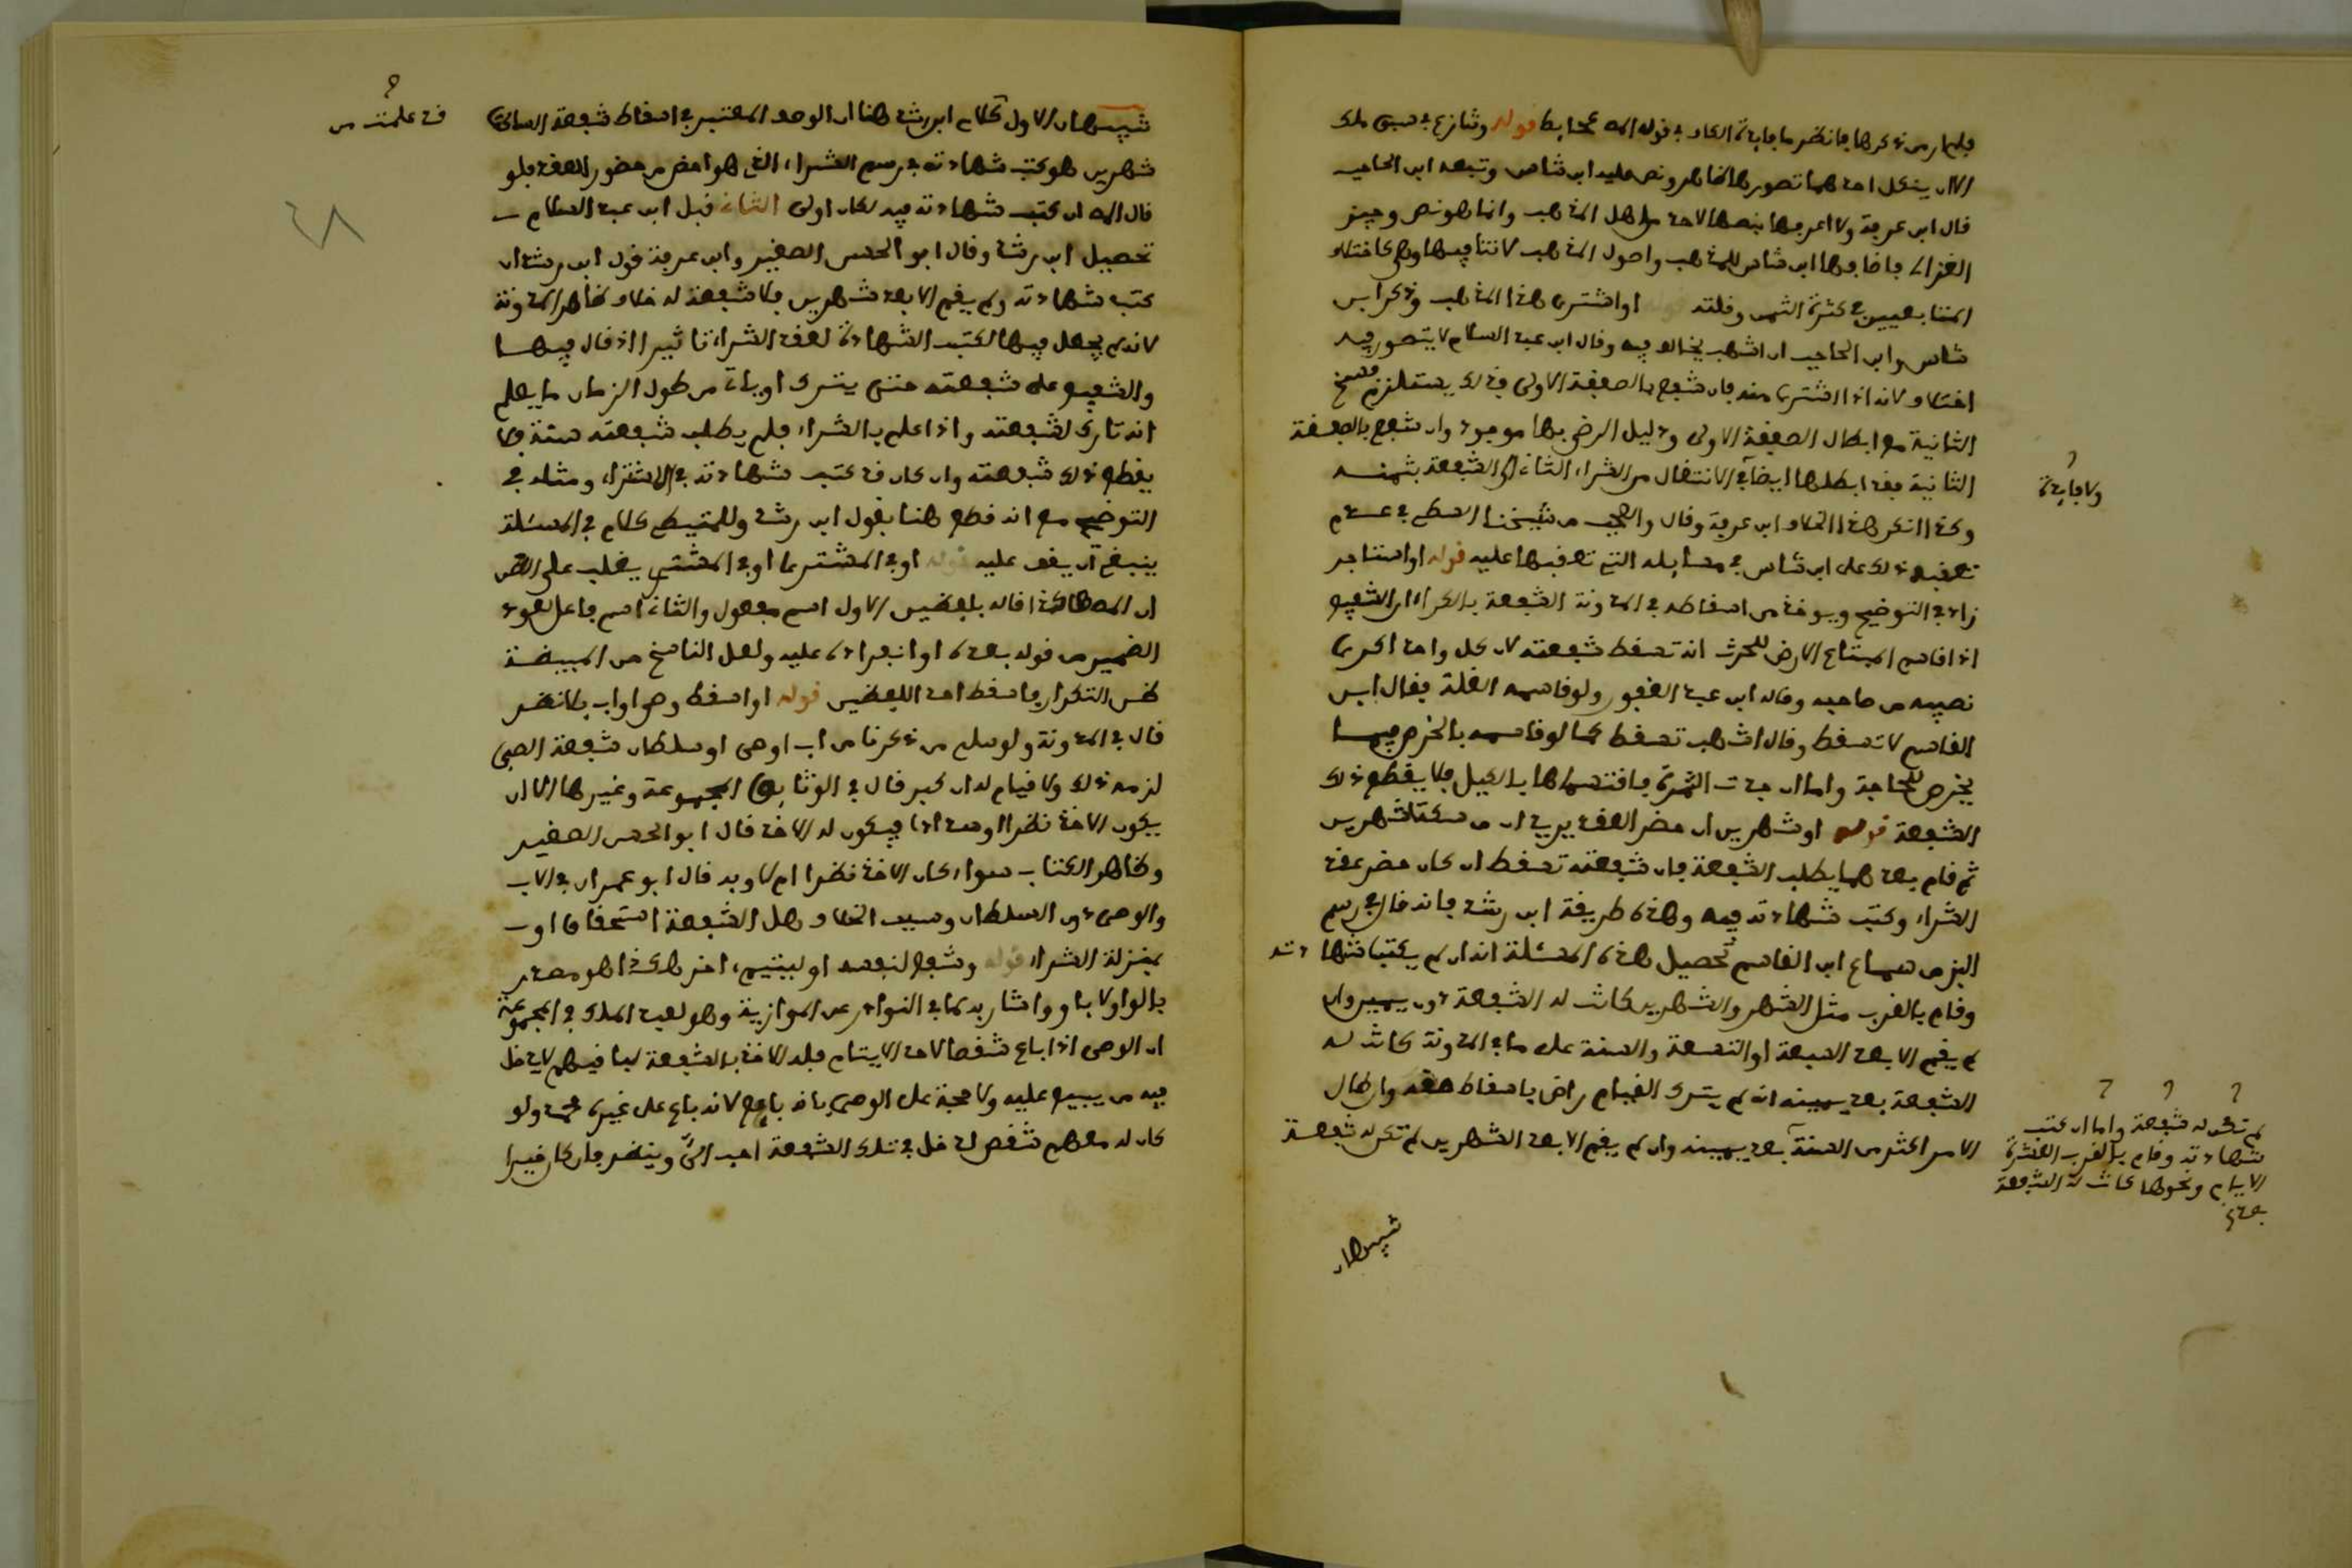 فلم ار من ذكرها فانظر ما فايدة الكاف في قوله اهـ كخايط قوله وتنازع في سبق ملك
الا ان ينكل احدهما تصورها ظاهر ونص عليه ابن شاس وتبعه ابن الحاجب
قال ابن عرفة ولا اعرفها بنصها لاحد من اهل المذهب وانما هو نص وجيز
الغزالي فاضافها ابن شاس للمذهب واصول المذهب لا تنافيها وهي كاختلاف
المتبايعين في كثرة الثمن وقلته او اشترى هذا المذهب وذكر ابن
شاس وابن الحاجب ان اشهب يخالف فيه وقال ابن عبد السلام لا يتصور فيه
اختلاف لانه اذا اشترى منه فان شفع بالصفقة الاولى فذلك يستلزم فسخ
الثانية مع ابطال الصفقة الاولى ودليل الرضى بها موجود وان شفع بالصفقة
الثانية فقد ابطلها ايضا في الانتقال من الشراء الثاني الى الشفعة بثمنه
وكذا انكر هذا الخلاف ابن عرفة وقال والعجب من شيخنا السطي في عدم
تعقبه ذلك على ابن شاس في مسايله التي تعقبها عليه قوله او استاجر
زاد في التوضيح ويوخذ من اسقاطه في المدونة الشفعة بالكراء ان الشفيع
اذا قاسم المبتاع الارض للحرث انه تسقط شفعته لان كل واحد اكرى
نصيبه من صاحبه وقاله ابن عبد الغفور ولو قاسمه الغلة فقال ابن
القاسم لا تسقط وقال اشهب تسقط كما لو قاسمه بالخرص فيما
يخرص للحاجة واما ان جدت الثمرة فاقتسماها بالكيل فلا يقطع ذلك
الشفعة قوله او شهرين ان حضر العقد يريد ان من سكت شهرين
ثم قام بعدهما يطلب الشفعة فان شفعته تسقط ان كان حضر عقد
الشراء وكتب شهادته فيه وهذه طريقة ابن رشد فانه قال في رسم
البز من سماع ابن القاسم تحصيل هذه المسئلة انه ان لم يكتب شهادته
وقام بالقرب مثل الشهر والشهرين كانت له الشفعة دون يمين وان
لم يقم الا بعد السبعة او التسعة والسنة على ما في المدونة كانت له
الشفعة بعد يمينه انه لم يترك القيام راض باسقاط حقه وان طال
الامر اكثر من السنة بعد يمينه وان لم يقم الا بعد الشهرين لم تكن له شفعة
ولا فايدة
لم تكن له شفعة واما ان كتب
شهادته وقام بالقرب العشرة
الايام ونحوها كانت له الشفعة
بعد
تنبيهان
تنبيهان الاول كلام ابن رشد هنا ان الوجه المعتبر في اسقاط شفعة الساكت
قد علمت من
شهرين هو كتب شهادته في رسم الشراء الذي هو اخص من حضور العقد فلو
قال اهـ ان كتب شهادته فيه لكان اولى الثاني قبل ابن عبد السلام
تحصيل ابن رشد وقال ابو الحسن الصغير وابن عرفة قول ابن رشد ان
كتب شهادته ولم يقم الا بعد شهرين فلا شفعة له خلاف ظاهر المدونة
لانه لم يجعل فيها لكتب الشهادة لعقد الشراء تاثيرا اذ قال فيها
والشفيع على شفعته حتى يترك او ياتي من طول الزمان ما يعلم
انه تارك لشفعته واذا علم بالشراء فلم يطلب شفعته سنة فلا
يقطع ذلك شفعته وان كان قد كتب شهادته في الاشتراء ومثله في
التوضيح مع انه قطع هنا بقول ابن رشد وللمتيطي كلام في المسئلة
ينبغي ان يقف عليه قوله او في المشترى او في المشتري يغلب على الظن
ان المصنف قاله بلفظين الاول اسم مفعول والثاني اسم فاعل لعود
الضمير من قوله بعده او انفراده عليه ولعل الناسخ من المبيضة
ظن التكرار فاسقط احد اللفظين قوله او اسقط وصي او اب بلا نظر
قال في المدونة ولو سلم من ذكرنا من اب او وصي او سلطان شفعة الصبي
لزمه ذلك ولا قيام له ان كبر قال في الوثايق المجموعة وغيرها الا ان
يكون الاخذ نظرا فيكون له الاخذ قال ابو الحسن الصغير
وظاهر الكتاب سواء كان الاخذ نظرا ام لا وبه قال ابو عمران في الاب
والوصي دون السلطان وسبب الخلاف هل الشفعة استحقاق او
بمنزلة الشراء قوله وشفع لنفسه او ليتيم اخر هكذا هو مصدر
بالواو لا باو واشار به لما في النوادر عن الموازية وهو لعبد الملك في المجموعة
ان الوصي اذا باع شقصا لاحد الايتام فله الاخذ بالشفعة لباقيهم لا يدخل
فيه من يبيع عليه ولا حجة على الوصي بانه بايع لانه باع على غيره ولو
كان له معهم شقص لدخل في تلك الشفعة احب الي وينظر فان كان خيرا